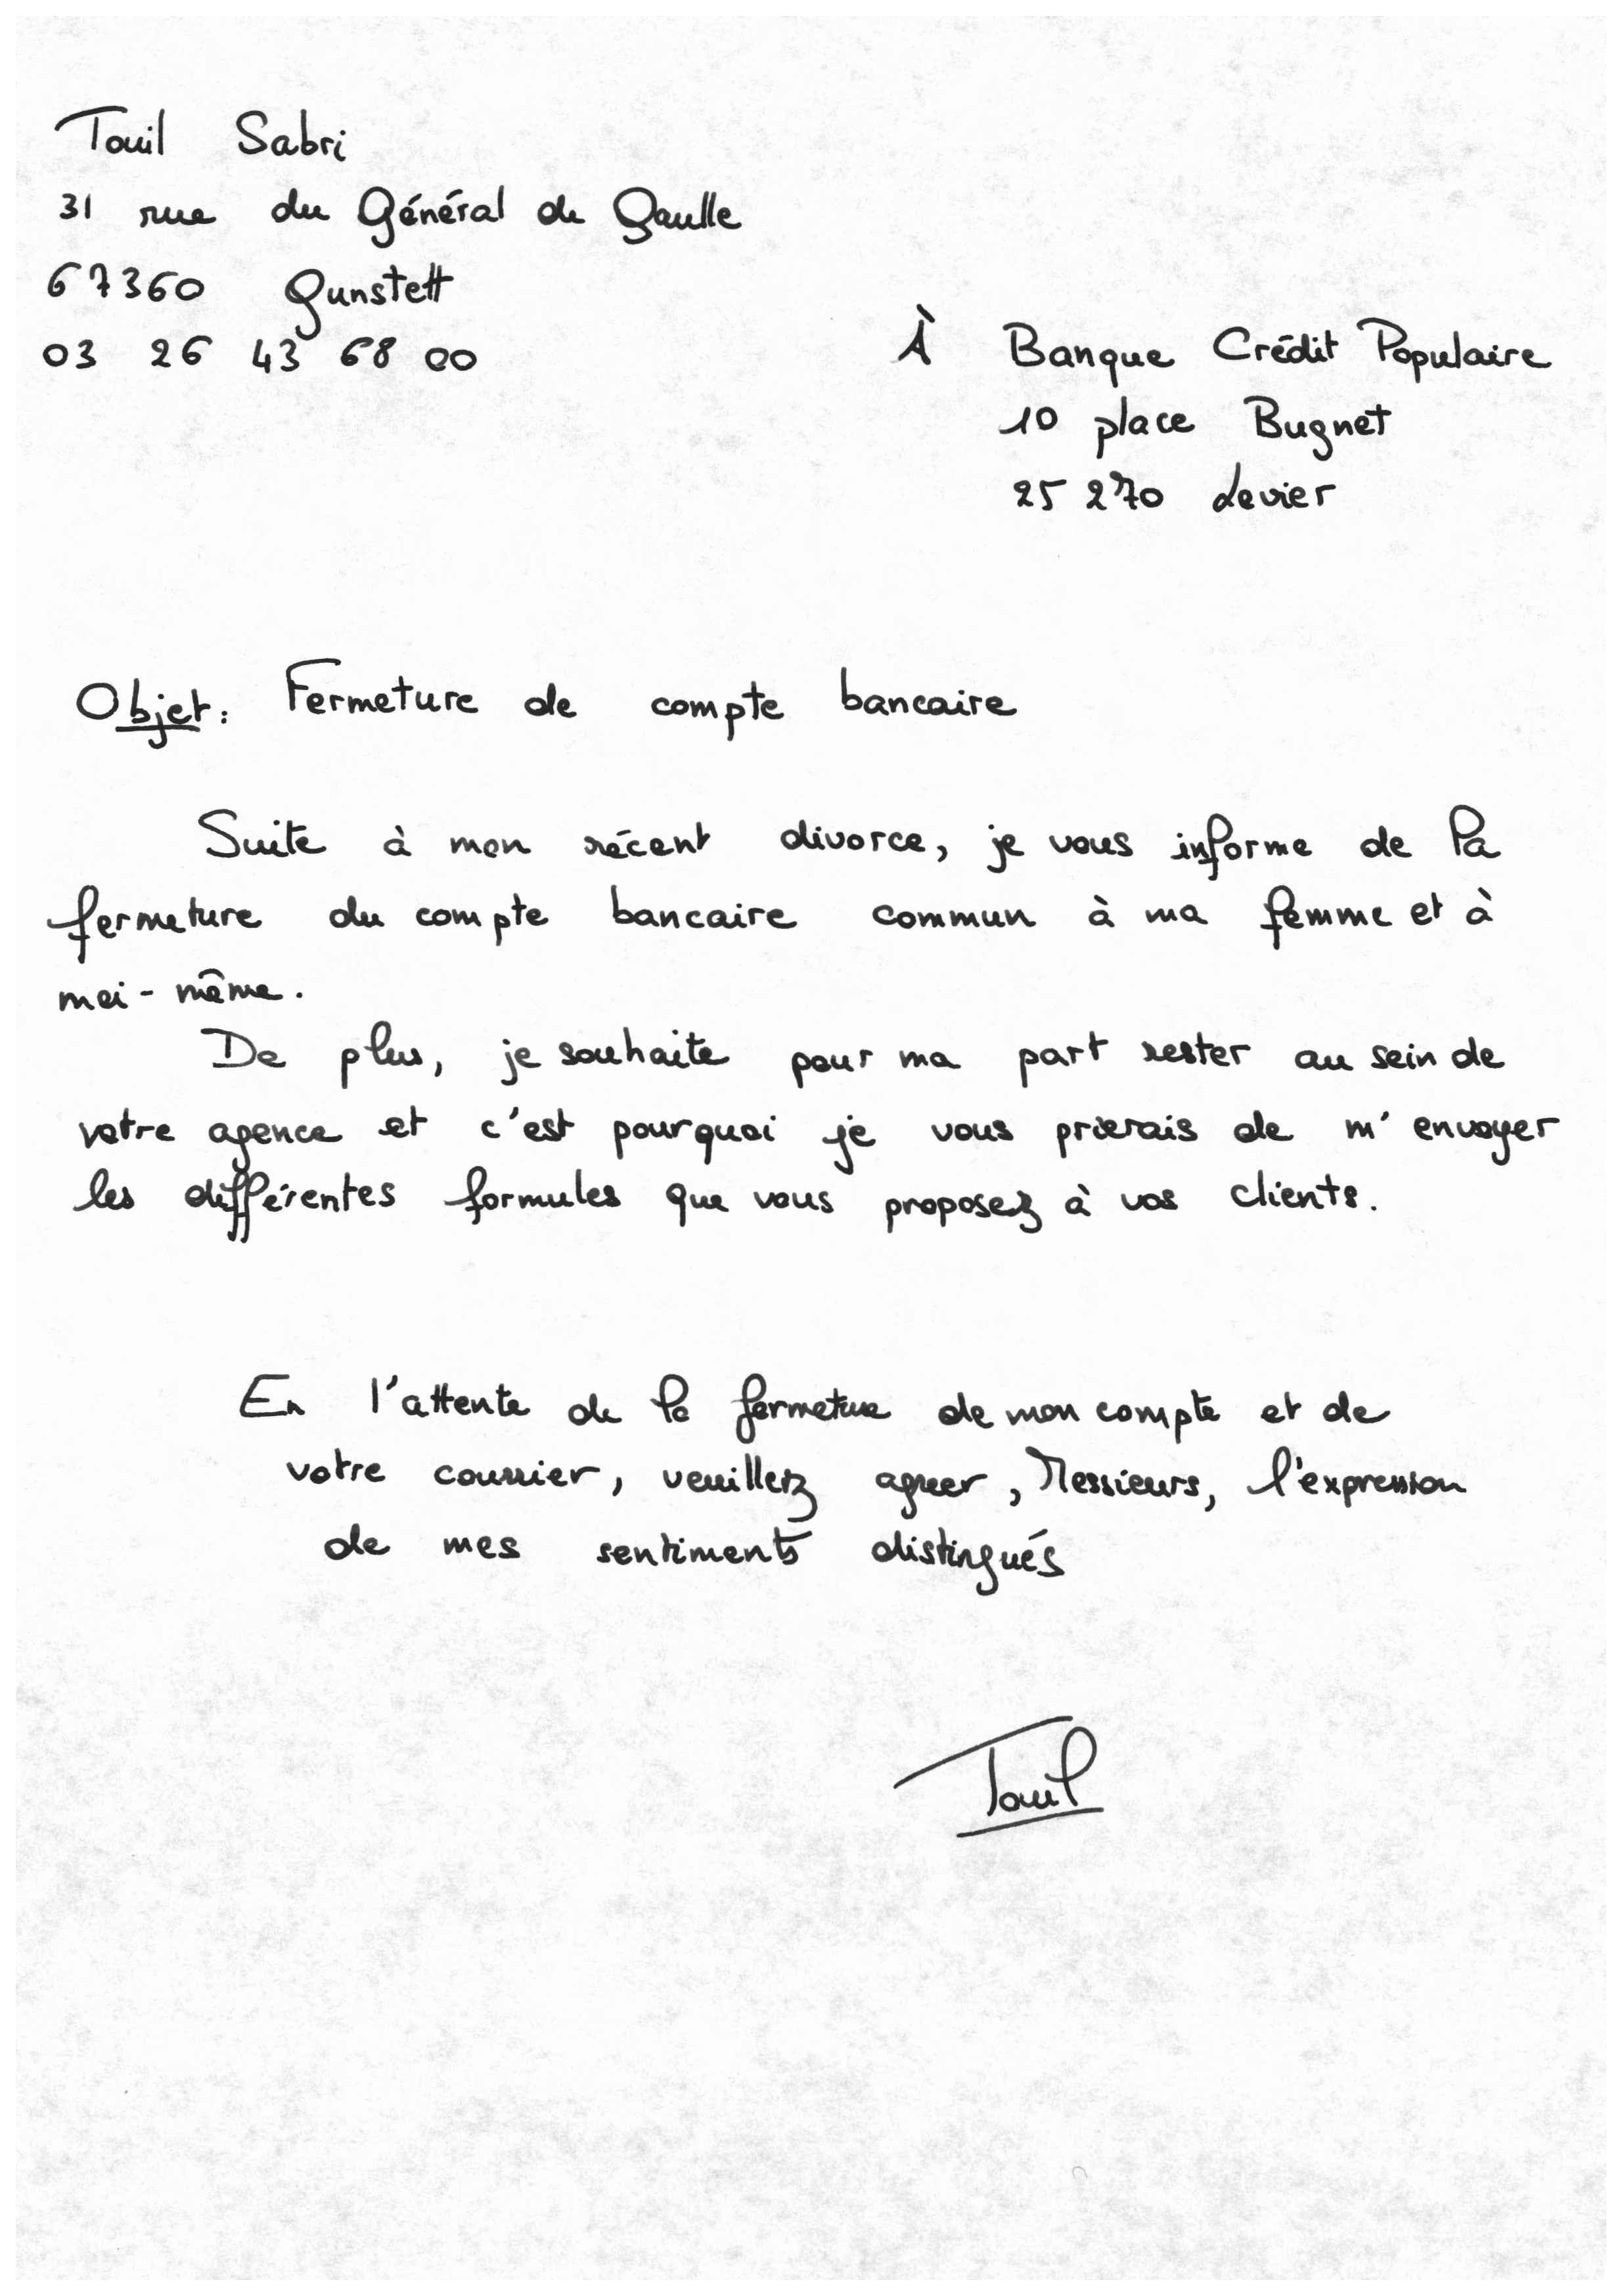 Touil Sabri
31 rue du Général de Gaulle
67360 Gunstett
03 26 43 68 00
À Banque Crédit Populaire
10 place Bugnet
25 270 Levier
Objet: Fermeture de compte bancaire
Suite à mon récent divorce, je vous informe de la
fermeture du compte bancaire commun à ma femme et à
moi-même.
De plus, je souhaite pour ma part rester au sein de
votre agence et c'est pourquoi je vous prierais de m'envoyer
les différentes formules que vous proposez à vos clients.
En l'attente de la fermeture de mon compte et de
votre courrier, veuillez agreer, Messieurs, l'expression
de mes sentiments distingués
Touil